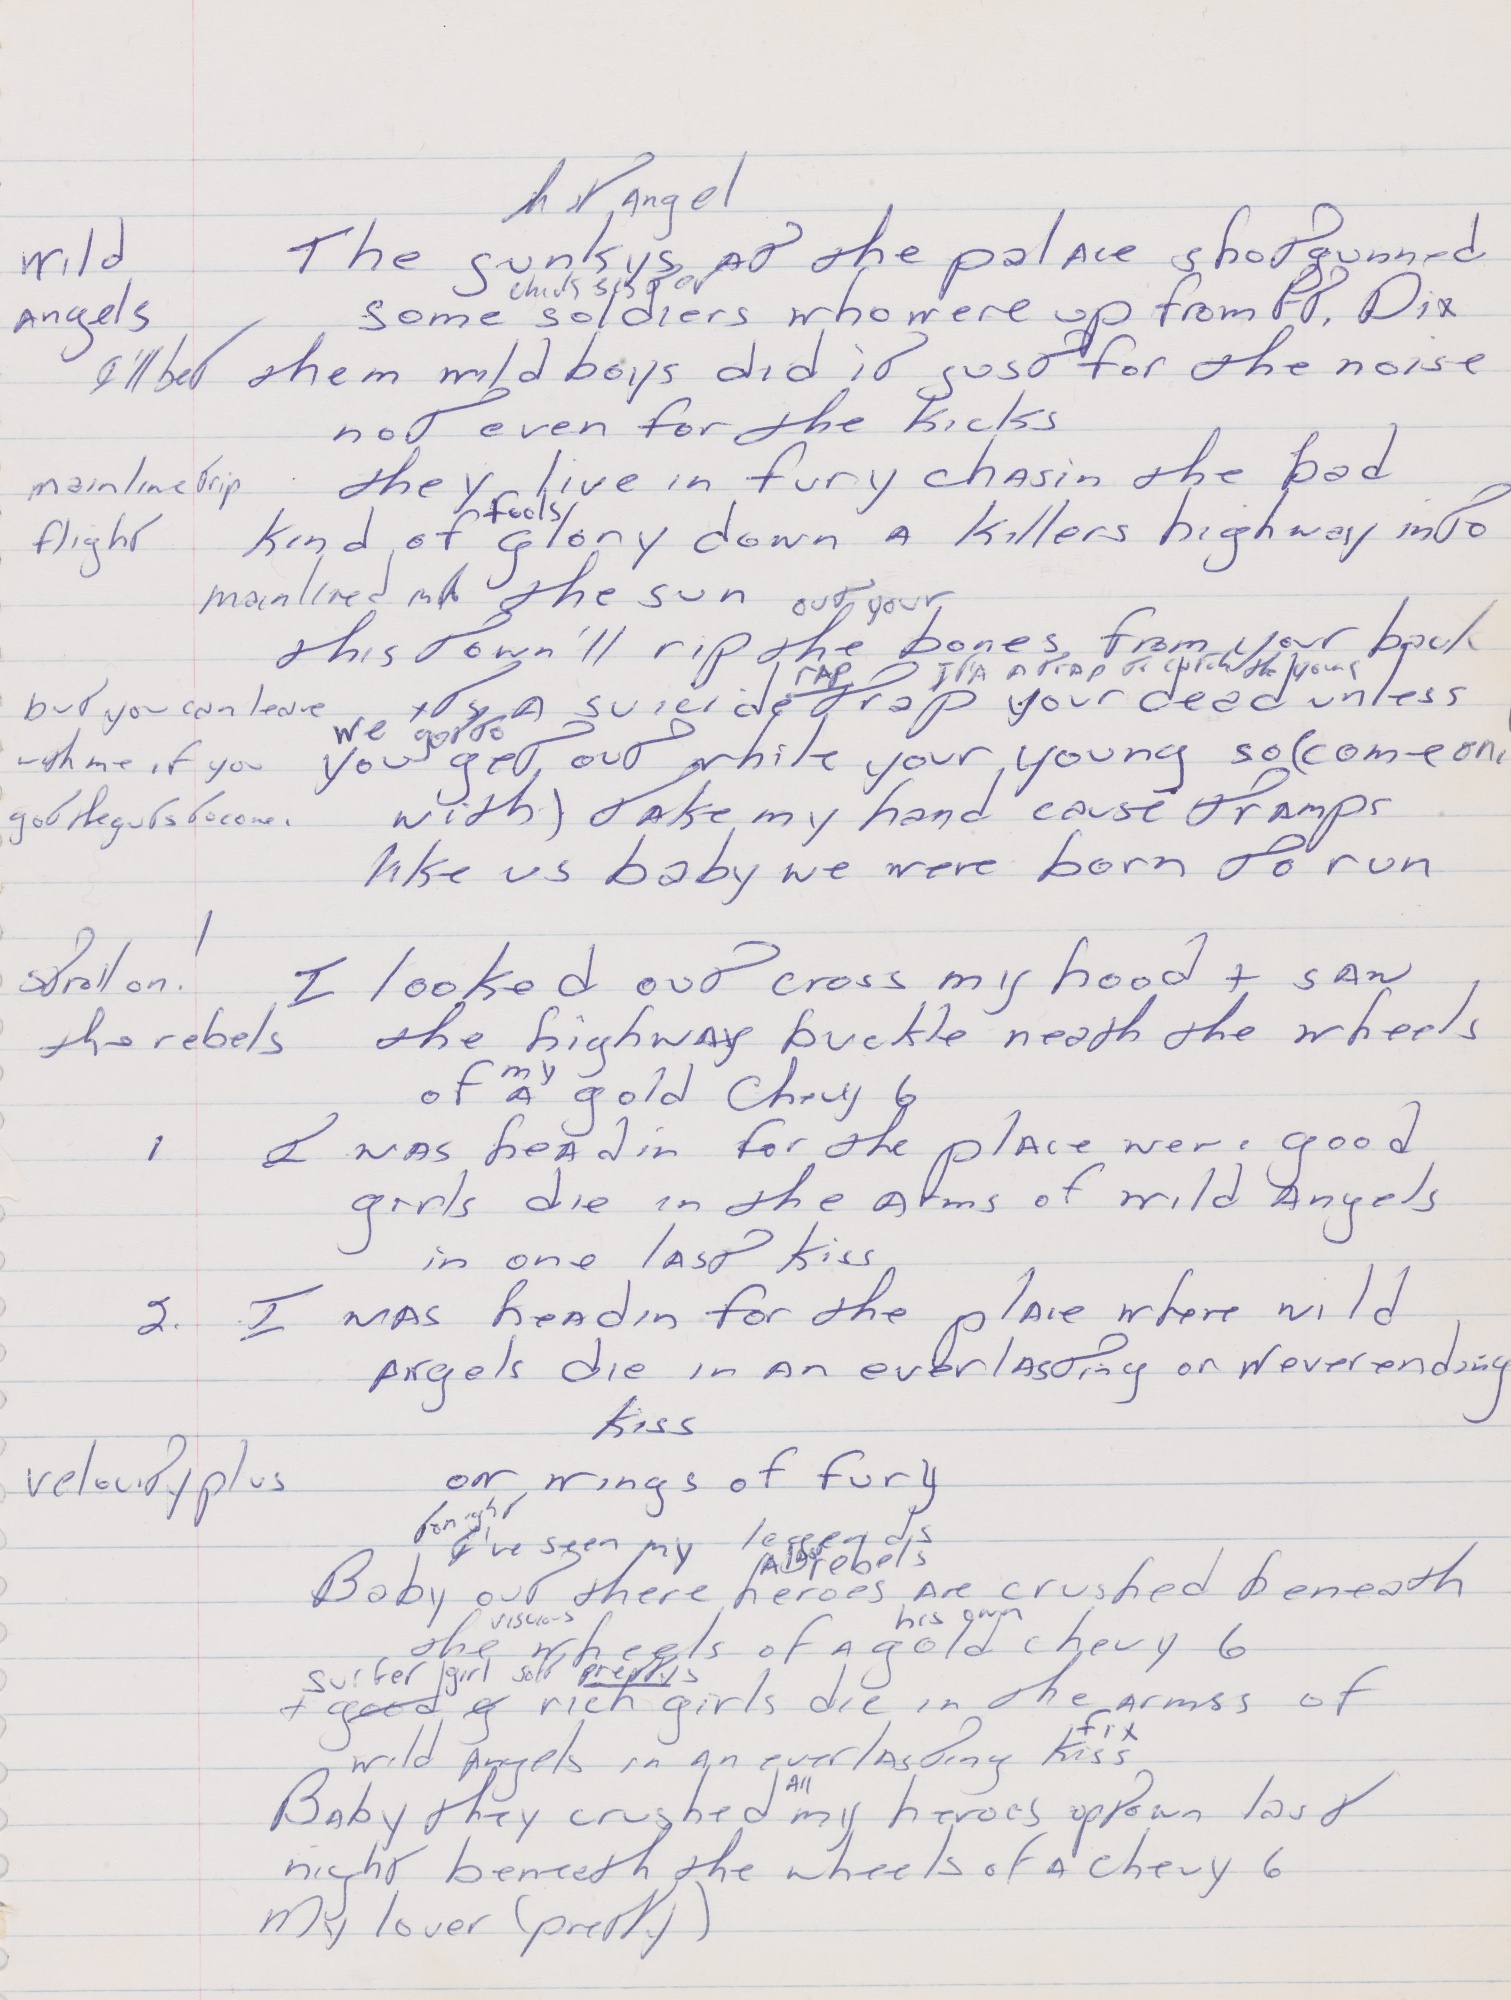 hot Angel
Wild The junkys At the palAce shotgunned
Angels some soldiers who were up from Ft. Dix
I'll bet them wild boys did it just for the noise
not even for the kicks
mainline trip they live in fury chAsin the bad
fools
flight kind of glory down A killers highway into
mainlined into the sun out your
this town'll rip the bones from your back
rAp It's A trAp to catch the young
but you can leave its A suicide trap your dead unless
we got to
with me if you you get out while your young so (come on
got the guts to come. with) tAke my hand cause trAmps
like us baby we were born to run
stroll on! I looked out cross my hood + sAw
the rebels the highwAy buckle neath the wheels
my
of A gold Chevy 6
1 I wAs heAdin for the plAce were good
girls die in the Arms of wild Angels
in one lAst kiss
2. I wAs heAdin for the plAce where wild
Angels die in An everlAsting or Neverending
kiss
velocity plus on wings of fury
tonight
I've seen my legends
rebels
Baby out there heroes Are crushed beneath
viscious his own
the wheels of A gold chevy 6
surfer girl prettys
+ good g rich girls die in the Armss of
fix
wild Angels in An everlAsting kiss
All
BAby they crushed my heroes uptown last
night beneath the wheels of A chevy 6
My lover (pretty)